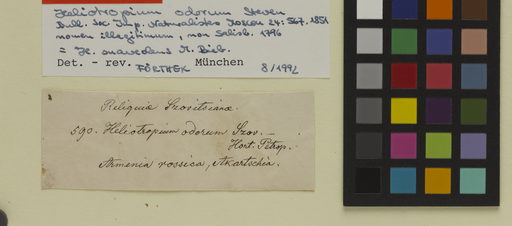 Heliotropium odorum Steven
Bull. Soc. Imp. Naturalistes Moscou 24: 567. 1851
nomen illegitimum, non Salisb. 1796
= H. suaveolens M. Bieb.
Det. - rev. FÖRTHER München 8/1992
Reliquiæ Szovitsianæ.
590. Heliotropium odorum Szov. —
Hort. Petrop.
Armenia rossica,